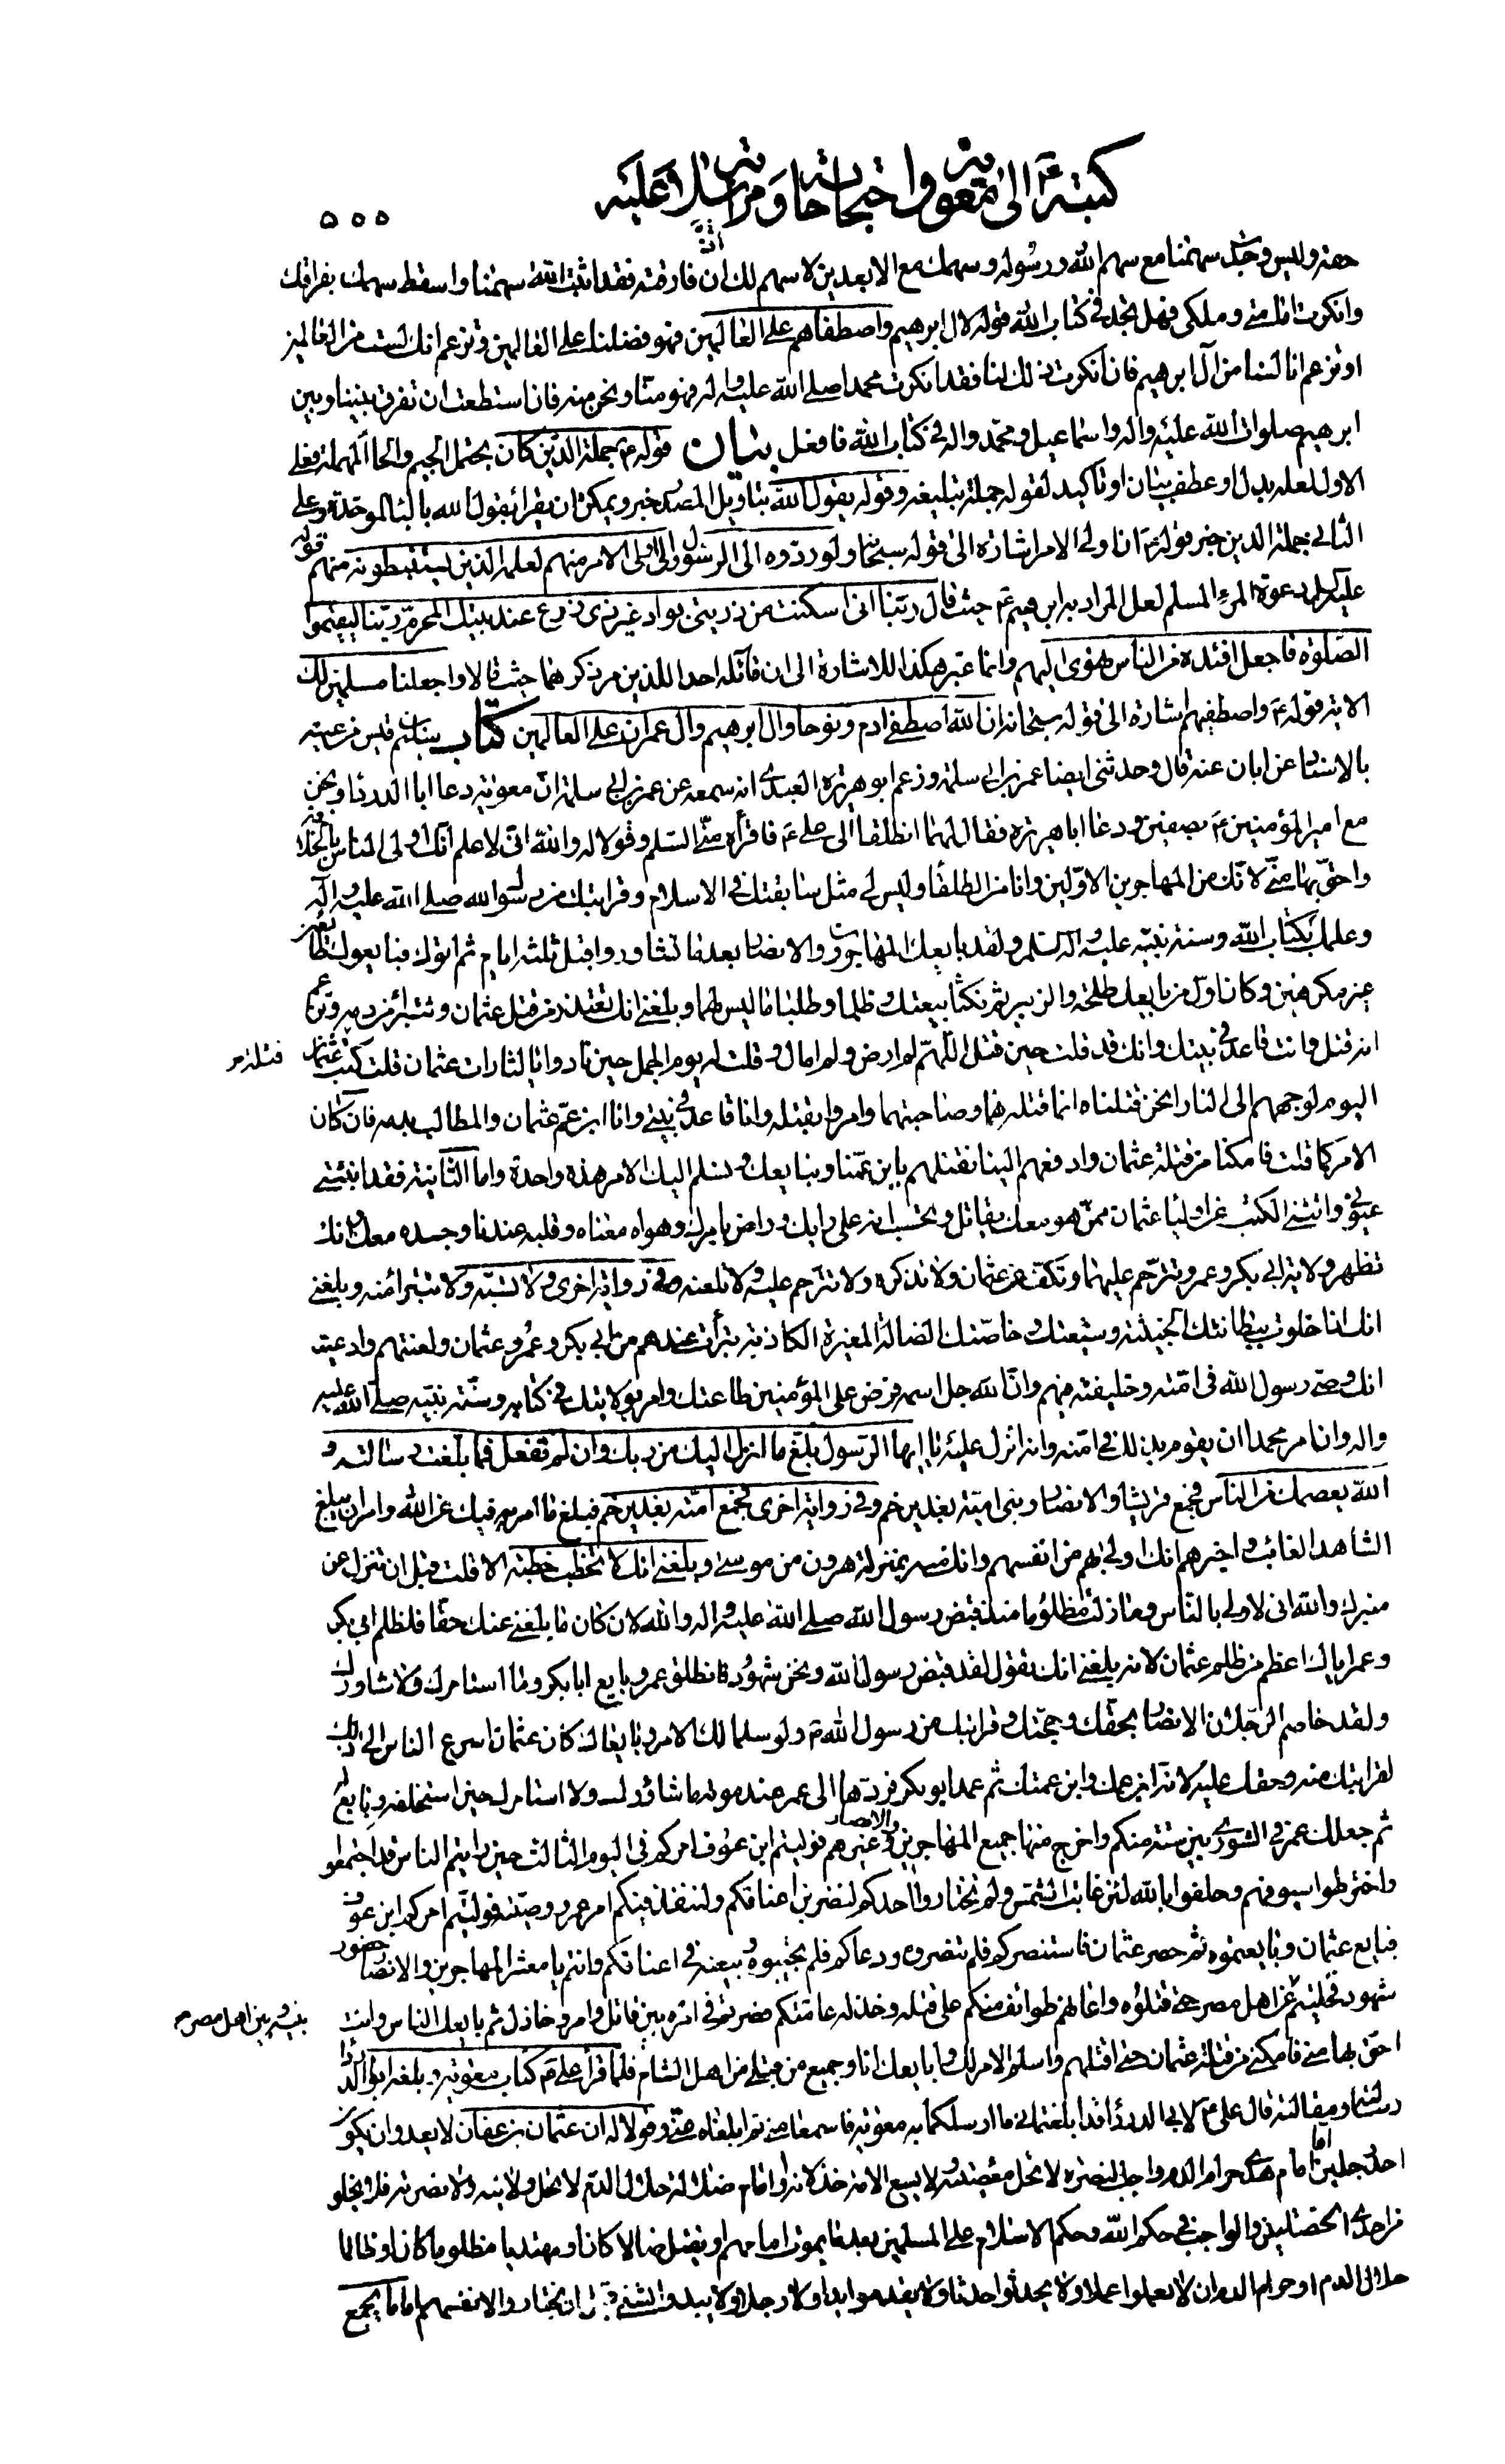 كتبه ع إلى معوية واحتجاجاته ومراسلاته عليه
٥٥٥
حقه وليس وجدك سهمنا مع سهم الله ورسوله وسهمك مع الابعدين لا سهم لك ان فارقته فقد اثبت الله سهمنا واسقط سهمك بفراقك
وانكرت امامتي وملكي فهل تجد في كتاب الله قوله لال ابرهيم واصطفاهم على العالمين فهو فضلنا على العالمين وتزعم انك لست من العالمين
او تزعم انا لسنا من آل ابرهيم فان انكرت ذلك لنا فقد انكرت محمدا صلى الله عليه واله فهو منا ونحن منه فان استطعت ان تفرق بيننا وبين
ابرهيم صلوات الله عليه واله واسماعيل ومحمد واله في كتاب الله فافعل بيان قوله ع جملة الدين كان يحتمل الجيم والحاء المهملة فعلى
الاول لعله بدل او عطف بيان او تأكيد لقوله جملة بتبليغه وقوله يقول الله بتأويل المصدر خبر ويمكن ان يقرأ بقول الله بالباء الموحدة وعلى
الثاني جملة الدين خبر قوله ع ان اولي الامر اشارة الى قوله سبحانه ولو ردوه الى الرسول والى اولي الامر منهم لعلمه الذين يستنبطونه منهم قوله
عليه السلم دعوة المرء المسلم لعل المراد به ابرهيم ع حيث قال ربنا اني اسكنت من ذريتي بواد غير ذي زرع عند بيتك المحرم ربنا ليقيموا
الصلوة فاجعل افئدة من الناس تهوى اليهم وانما عبر هكذا للاشارة الى ان قائله احد اللذين مر ذكرهما حيث قالا واجعلنا مسلمين لك
الاية قوله ع واصطفيهم اشارة الى قوله سبحانه ان الله اصطفى ادم ونوحا وال ابرهيم وال عمران على العالمين كتاب سليم بن قيس مر عينه
بالاسناد عن ابان عنه قال وحدثني ايضا عمر بن ابي سلمة وزعم ابو هريرة العبدي انه سمعه عن عمر بن ابي سلمة ان معوية دعا ابا الدرداء ونحن
مع امير المؤمنين ع بصفين ودعا ابا هريرة فقال لهما انطلقا الى علي ع فاقرآه مني السلم وقولا له والله اني لاعلم انك اولى الناس بالخلافة
واحق بها مني لانك من المهاجرين الاولين وانا من الطلقاء وليس لي مثل سابقتك في الاسلام وقرابتك من رسول الله صلى الله عليه واله
وعلمك بكتاب الله وسنة نبيه عليه واله السلم ولقد بايعك المهاجرون والانصار بعد ما تشاوروا فيك ثلثة ايام ثم اتوك فبايعوك طائعين
غير مكرهين وكان اول من بايعك طلحة والزبير ثم نكثا بيعتك وظلما وطلبا ما ليس لهما وبلغني انك تعتذر من قتل عثمان وتتبرأ من دمه وتزعم
انه قتل وانت قاعد في بيتك وانك قد قلت حين قتل اللهم لم ارض ولم امال وقلت له يوم الجمل حين نادوا يا لثارات عثمان قلت كب قتلة عثمان
اليوم لوجوههم الى النار انحن قتلناه انما قتله هما وصاحبتهما وامروا بقتله وانا قاعد في بيتي وانا ابن عم عثمان والمطالب بدمه فان كان
الامر كما قلت فامكنا من قتلة عثمان وادفعهم الينا نقتلهم بابن عمنا ونبايعك ونسلم اليك الامر هذه واحدة واما الثانية فقد انبأتني
عيوني واتتني الكتب عن اولياء عثمان ممن هو معك يقاتل وتحسب انه على رايك وراض بامرك وهواه معنا وقلبه عندنا وجسده معك انك
تظهر ولاية ابي بكر وعمر وتترحم عليهما وتكف عن عثمان ولا تذكره ولا تترحم عليه ولا تلعنه وفي رواية اخرى ولا تسبه ولا تتبرأ منه وبلغني
انك اذا خلوت ببطانتك الخبيثة وشيعتك وخاصتك الضالة المغيرة الكاذبة تبرأت عندهم من ابي بكر وعمر وعثمان ولعنتهم وادعيت
انك وصي رسول الله في امته وخليفته فيهم وان الله جل اسمه فرض على المؤمنين طاعتك وامر بولايتك في كتابه وسنة نبيه صلى الله عليه
واله وان الله امر محمدا ان يقوم بذلك في امته وانه انزل عليه يا ايها الرسول بلغ ما انزل اليك من ربك وان لم تفعل فما بلغت رسالته و
الله يعصمك من الناس فجمع قريشا والانصار وبني امية بغدير خم وفي رواية اخرى فجمع امته بغدير خم فبلغ ما امر به فيك عن الله وامر ان يبلغ
الشاهد الغائب واخبرهم انك اولى بهم من انفسهم وانك منه بمنزلة هرون من موسى وبلغني انك لا تخطب خطبة الا قلت قبل ان تنزل عن
منبرك والله اني لاولى بالناس وما زلت مظلوما منذ قبض رسول الله صلى الله عليه واله والله لان كان ما بلغني عنك حقا فلظلم ابي بكر
وعمر اياك اعظم من ظلم عثمان لانه بلغني انك تقول لقد قبض رسول الله ونحن شهود فانطلق عمر وبايع ابا بكر وما استامرك ولا شاورك
ولقد خاصم الرجلان الانصار بحقك وحجتك وقرابتك من رسول الله ص ولو سلما لك الامر وبايعاك كان عثمان اسرع الناس الى ذلك
لقرابتك منه وحقك عليه لانه ابن عمك وابن عمتك ثم عمد ابو بكر فردها الى عمر عند موته ما شاورك ولا استامرك حين استخلفه وبايع له
ثم جعلك عمر في الشورى بين ستة منكم واخرج منها جميع المهاجرين والانصار وغيرهم فوليتم ابن عوف امركم في اليوم الثالث حين رايتم الناس قد اجتمعوا
واخترطوا سيوفهم وحلفوا بالله لئن غابت الشمس ولم تختاروا احدكم ليضربن اعناقكم ولينفذن فيكم امر عمر ووصيته فوليتم امركم ابن عوف
فبايع عثمان وبايعتموه ثم حصر عثمان فاستنصركم فلم تنصروه ودعاكم فلم تجيبوه وبيعته في اعناقكم وانتم يا معشر المهاجرين والانصار حضور
شهود فخليتم عن اهل مصر حتى قتلوه واعانهم طوائف منكم على قتله وخذله عامتكم فصرتم في امره بين قاتل وامر وخاذل ثم بايعك الناس وانت
احق بها مني فامكني من قتلة عثمان حتى اقتلهم واسلم الامر لك وابايعك انا وجميع من قبلي من اهل الشام فلما قرأ علي ع كتاب معوية وبلغه ابو الدرداء
رسالته ومقالته قال علي ع لابي الدرداء قد ابلغتماني ما ارسلكما به معوية فاسمعا مني ثم ابلغاه عني وقولا له ان عثمان بن عفان لا يعدو ان يكون
احد رجلين اما امام هدى حرام الدم واجب النصرة لا تحل معصيته ولا يسع الامة خذلانه او امام ضلالة حلال الدم لا تحل ولايته ولا نصرته فلا يخلو
من احدى الخصلتين والواجب في حكم الله وحكم الاسلام على المسلمين بعد ما يموت امامهم او يقتل ضالا كان او مهتديا مظلوما كان او ظالما
حلال الدم او حرام الدم ان لا يعملوا عملا ولا يحدثوا حدثا ولا يقدموا يدا ولا رجلا ولا يبدوا بشيء قبل ان يختاروا لانفسهم اماما يجمع